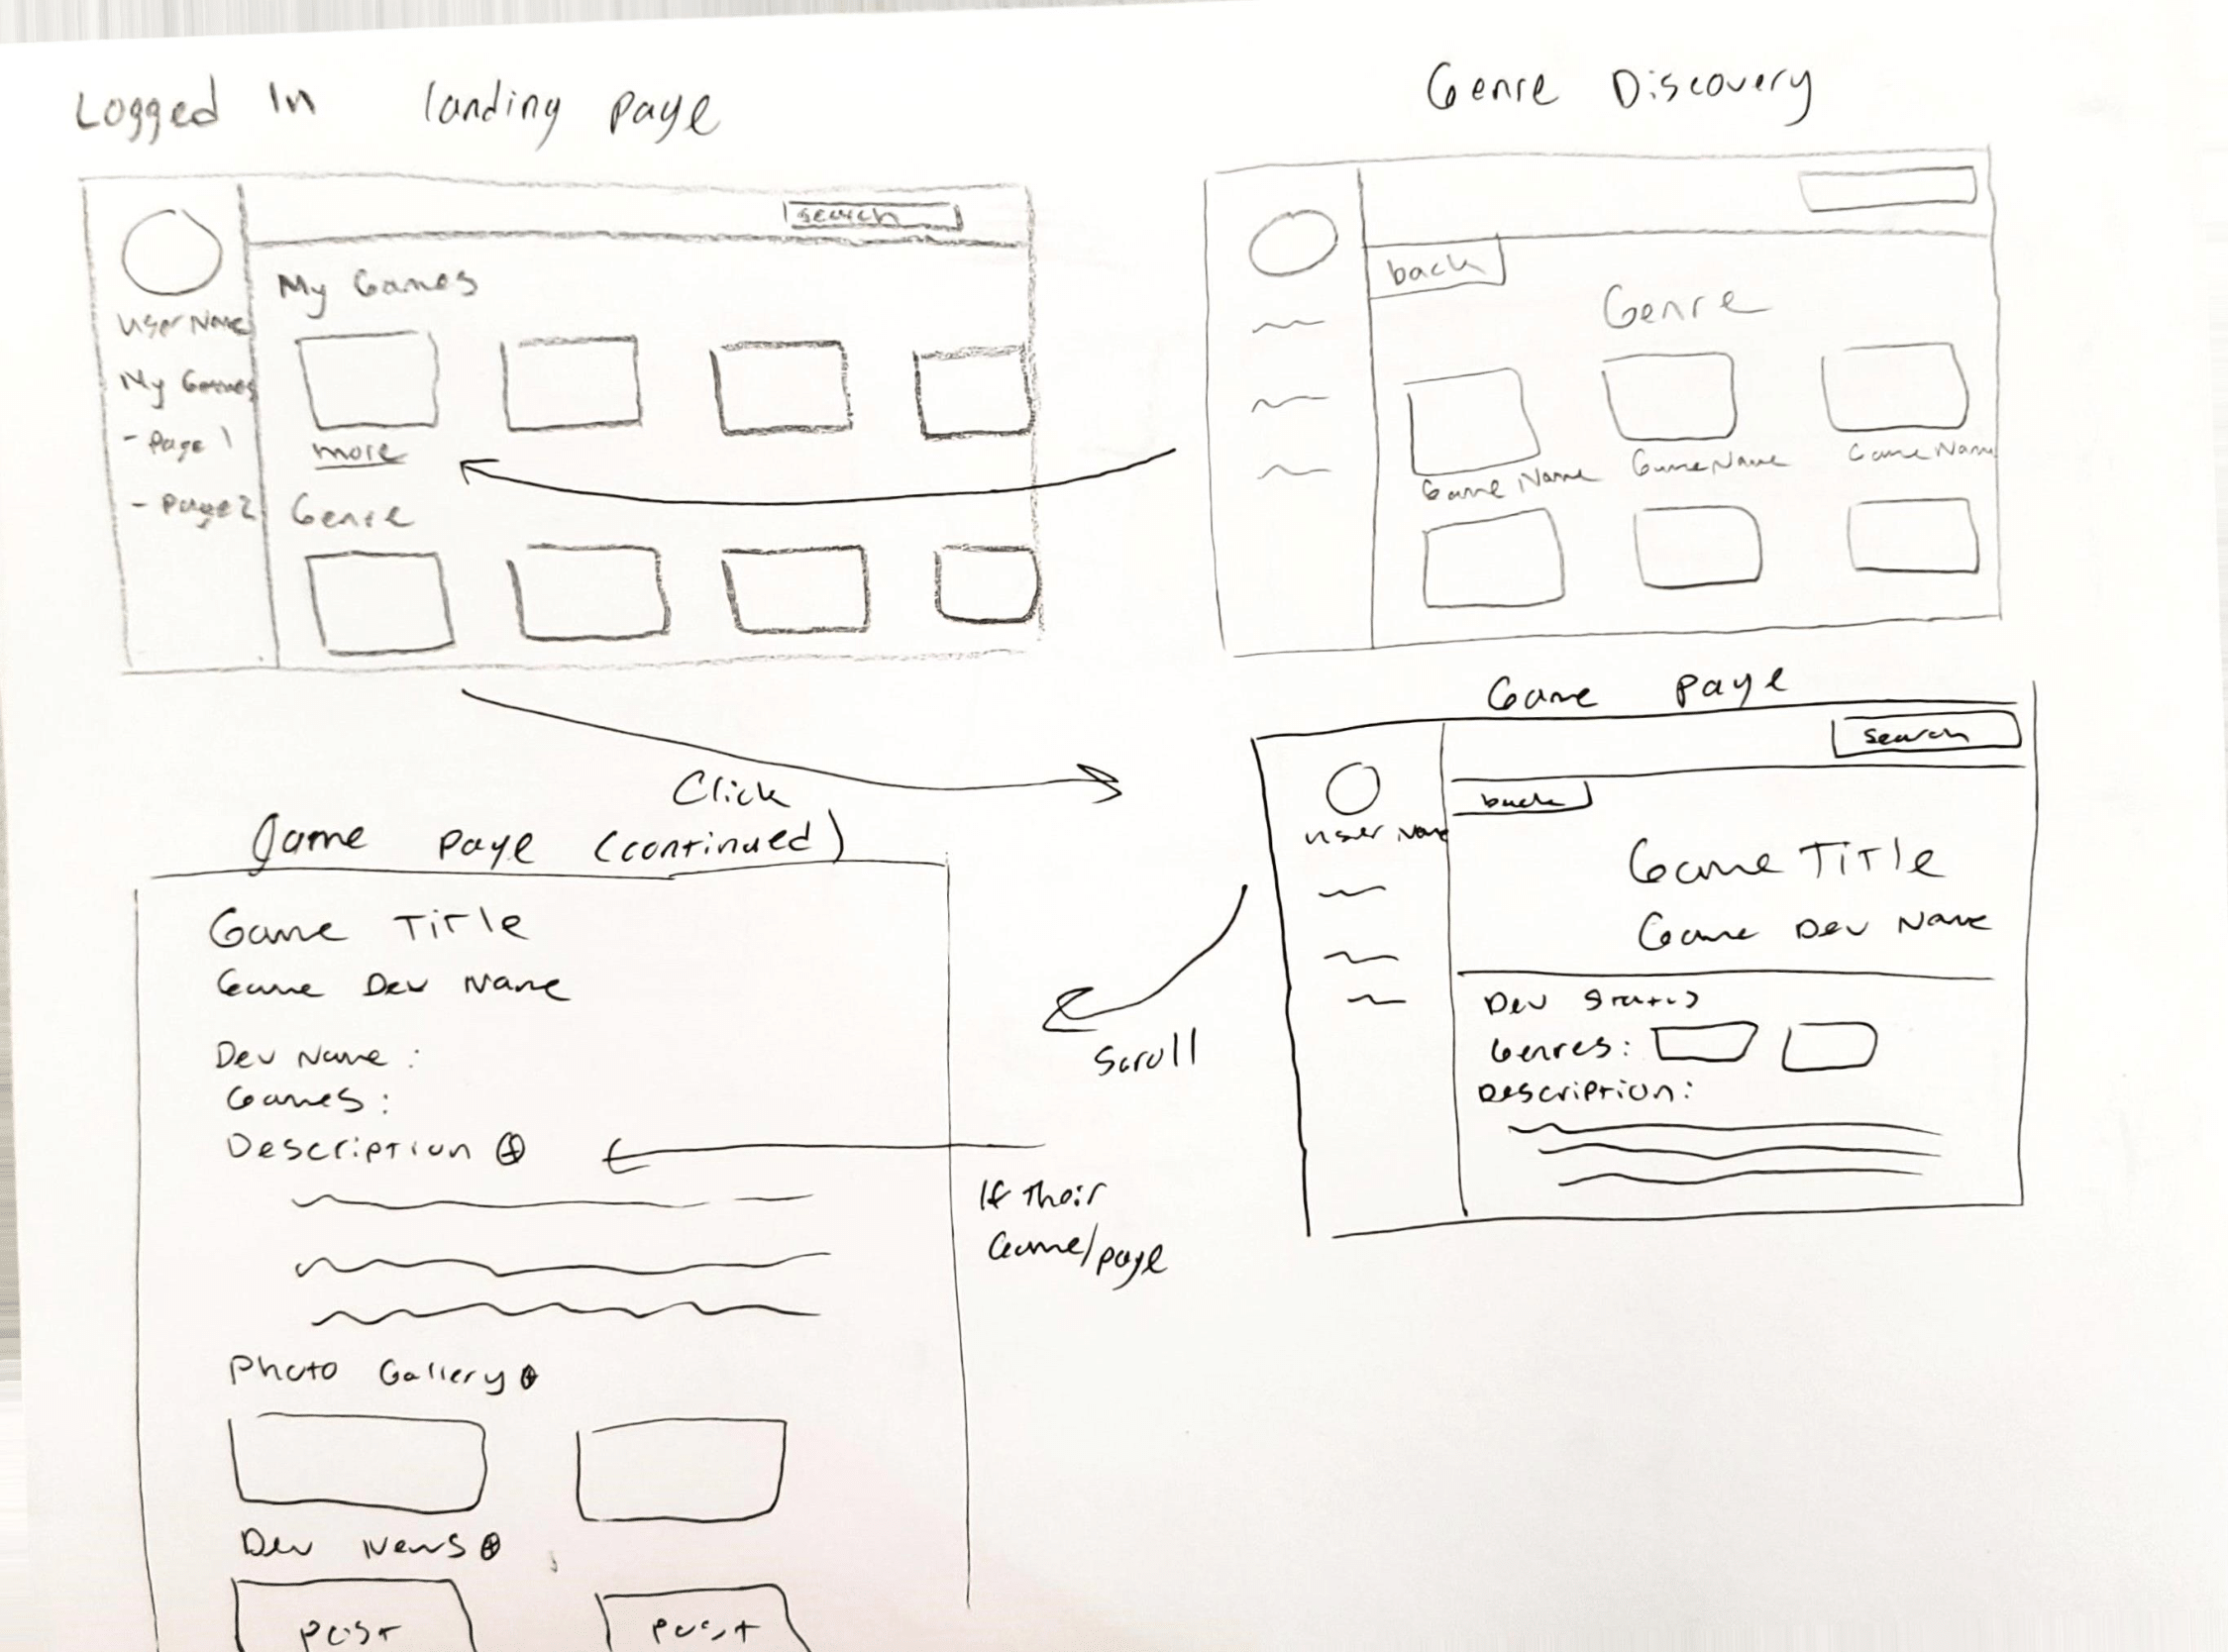 Logged In landing page
search
My Games
User Name
My Games
- Page 1
more
- Page 2
Genre
Genre Discovery
back
Genre
Game Name
Game Name
Game Name
Click
Game page
search
back
User Name
Game Title
Game Dev Name
Dev Status
Genres:
Description:
Scroll
Game page (continued)
Game Title
Game Dev Name
Dev Name :
Games :
Description ⊕
If Their
Game/page
Photo Gallery ⊕
Dev News ⊕
Post
Post